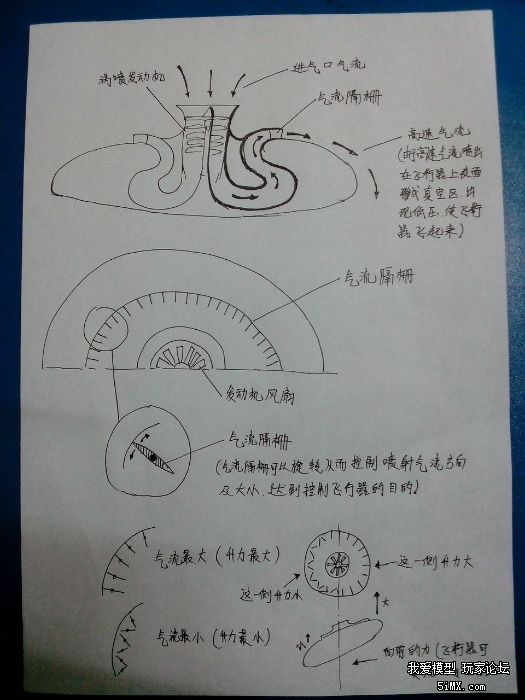 涡喷发动机
进气口气流
气流隔栅
高速气流
(由于高速气流喷出
在飞行器上表面
形成真空区,出
现低压,使飞行
器飞起来)
气流隔栅
发动机风扇
气流隔栅
(气流隔栅可以旋转,从而控制喷射气流方向
及大小,达到控制飞行器的目的)
气流最大(升力最大)
这一侧升力大
这一侧升力小
大
气流最小(升力最小)
小
向前的力(飞行器可
我爱模型 玩家论坛
5iMX.com